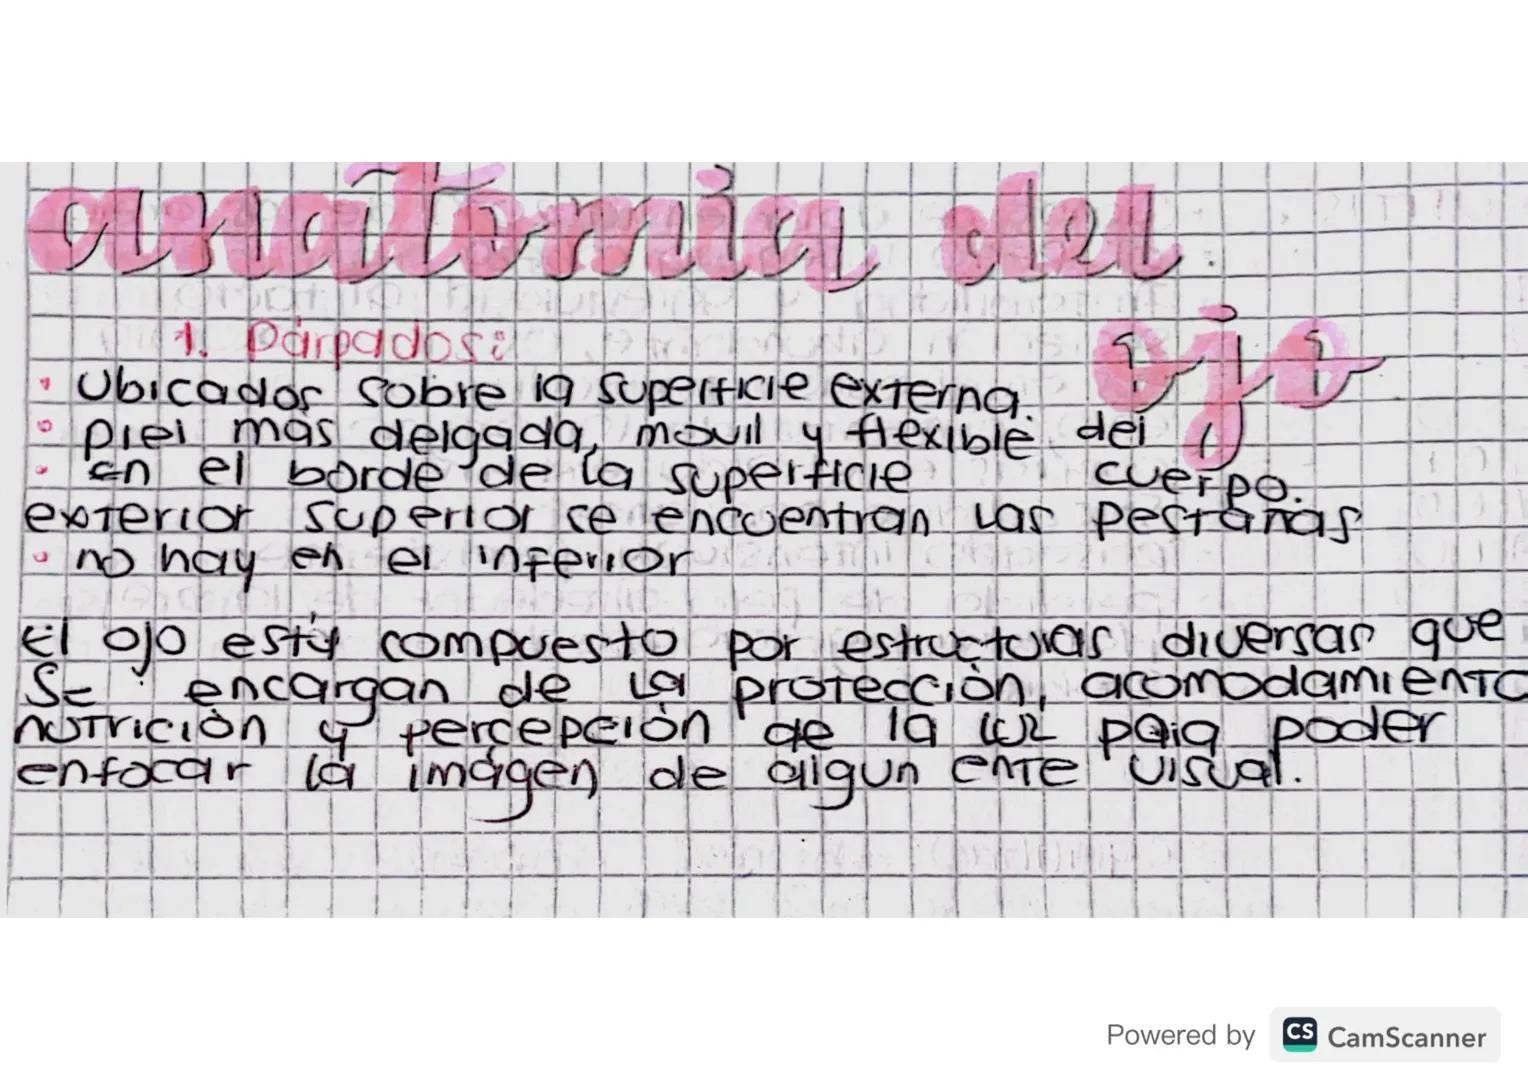 anatomia del
ojo
1. Párpados:
Ubicados sobre la superficie externa.
piel más delgada, movil y flexible del
cuerpo.
en el borde de la superficie
exterior superior se encuentran las pestañas
no hay en el inferior
El ojo está compuesto por estructuras diversas que
se encargan de la protección, acomodamiento
nutrición y percepción de la luz para poder
enfocar la imágen de algun ente visual.
Powered by CS CamScanner